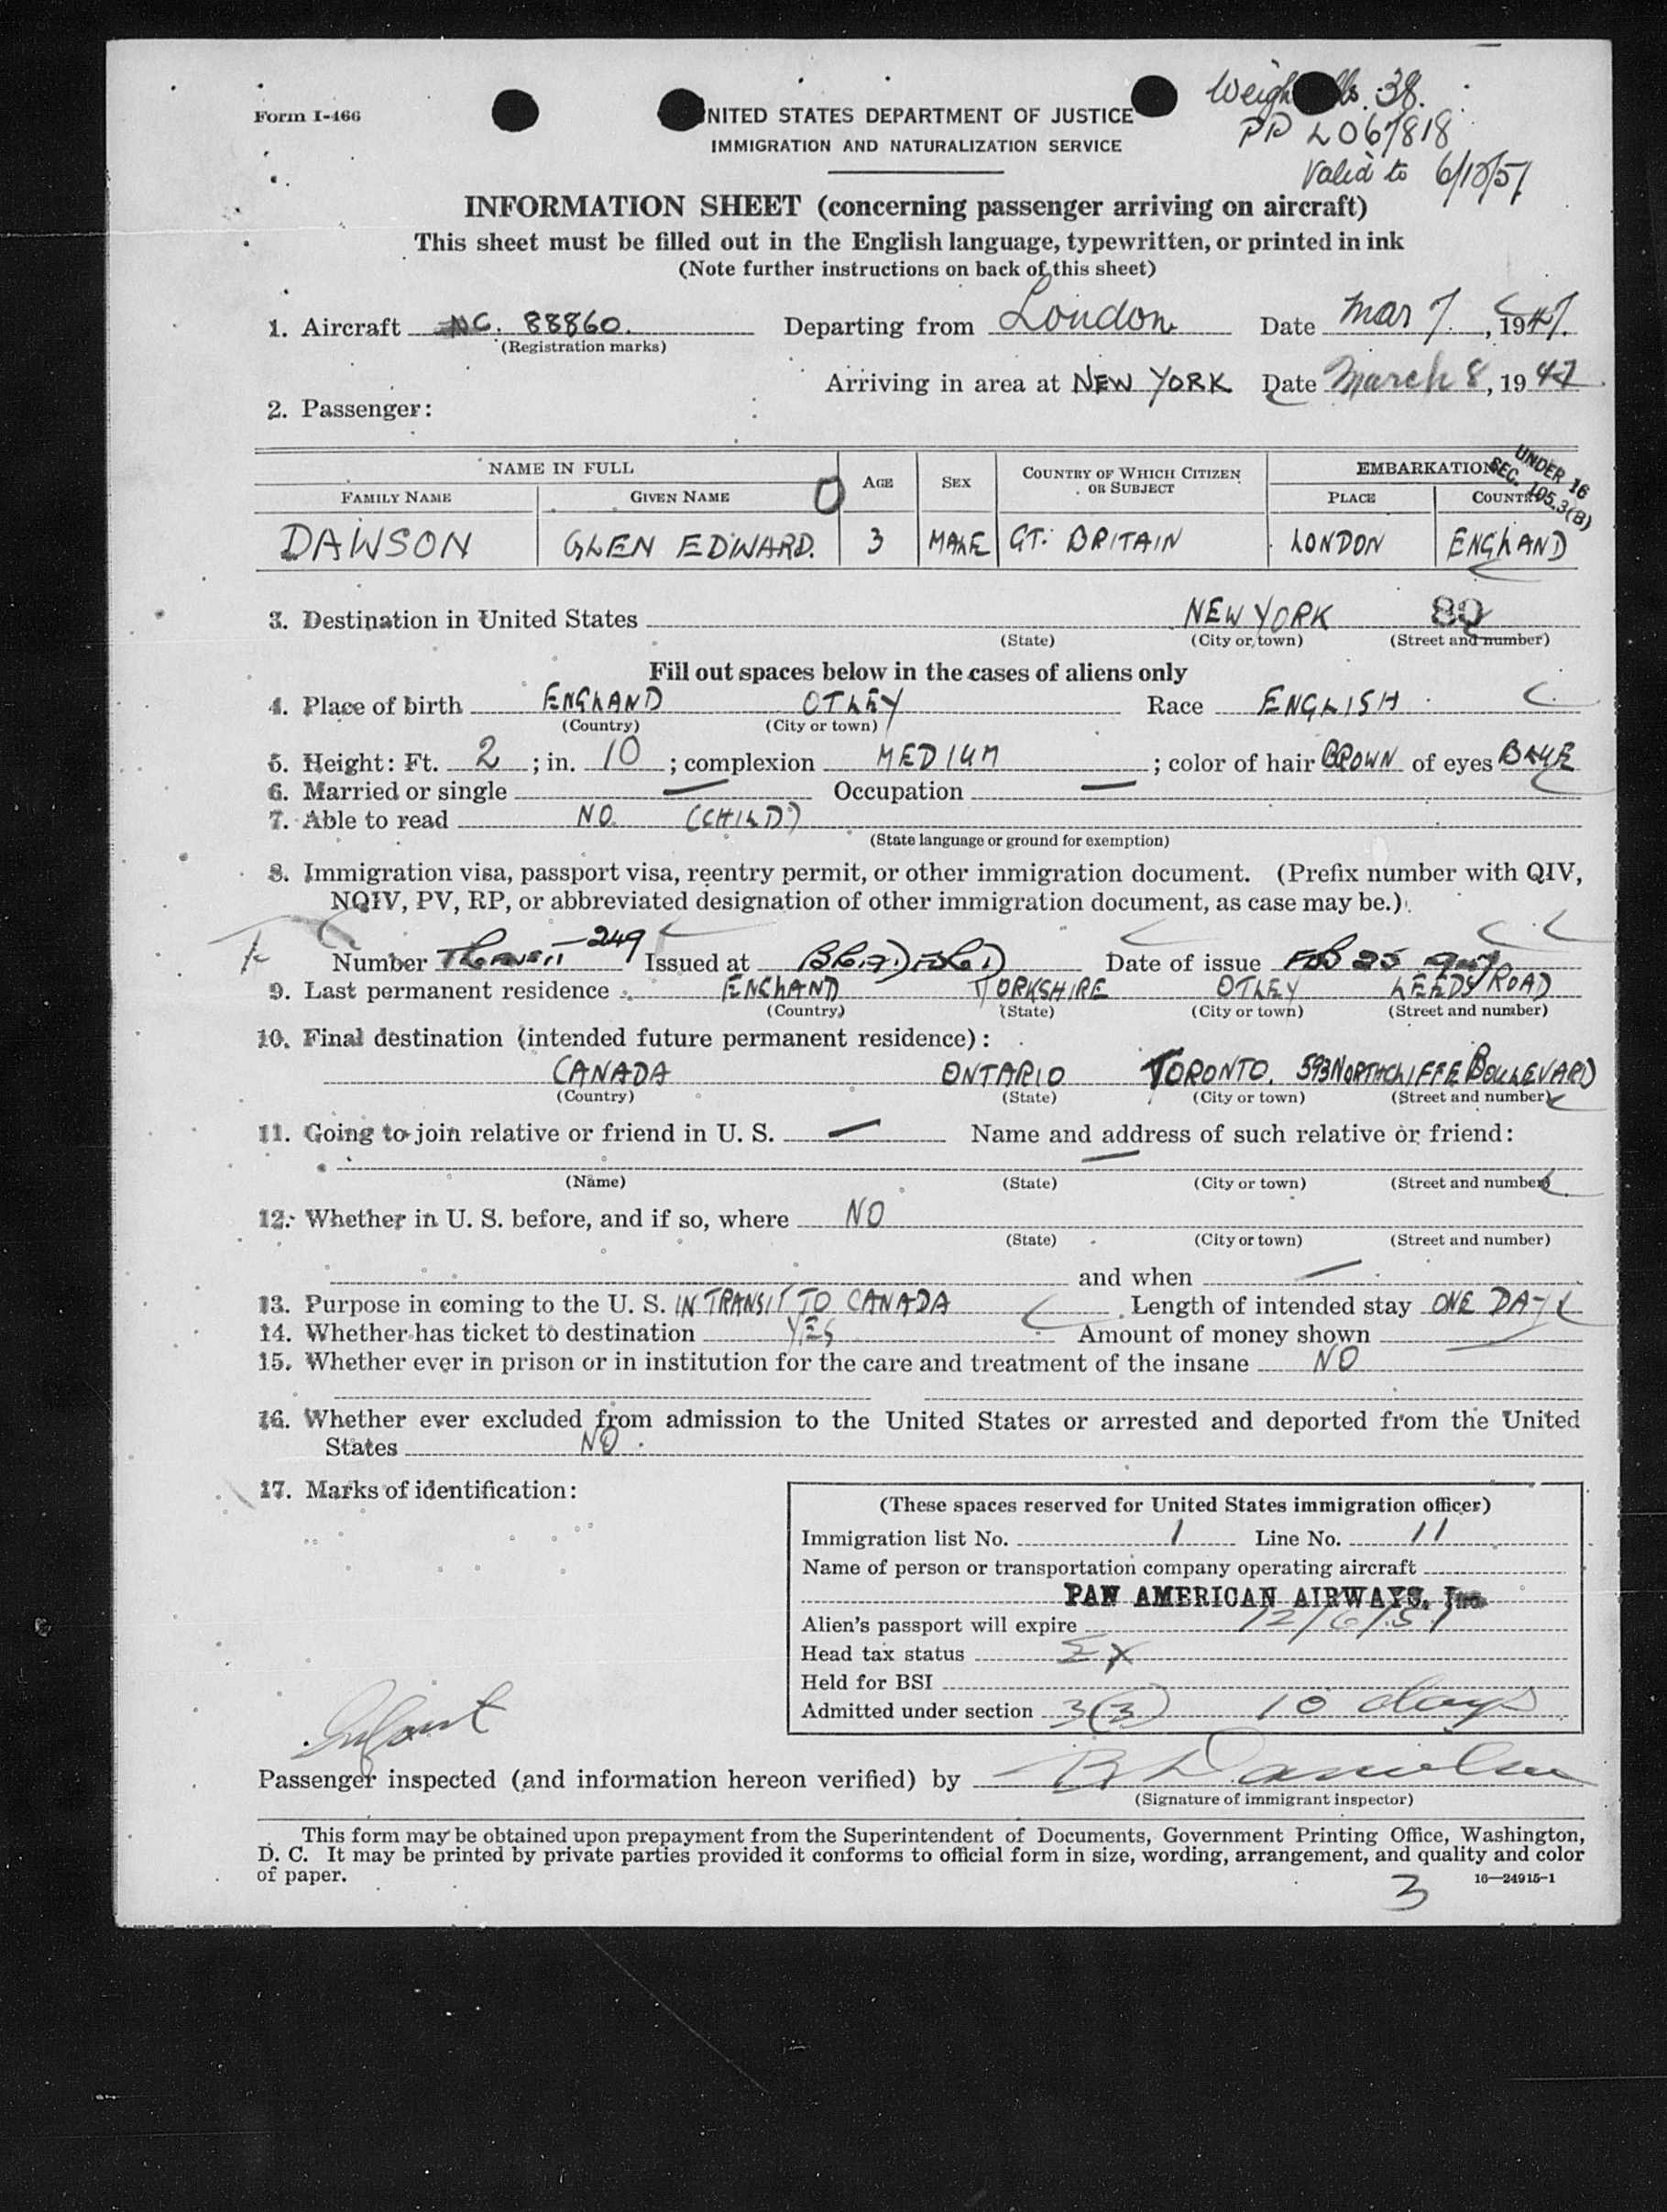 Form I-466
UNITED STATES DEPARTMENT OF JUSTICE
IMMIGRATION AND NATURALIZATION SERVICE
Weigh lbs. 38.
PP L067818
Valid to 6/12/51
INFORMATION SHEET (concerning passenger arriving on aircraft)
This sheet must be filled out in the English language, typewritten, or printed in ink
(Note further instructions on back of this sheet)
1. Aircraft NC. 88860. Departing from London Date Mar 7, 1947.
(Registration marks)
Arriving in area at NEW YORK Date March 8, 1947
2. Passenger:
NAME IN FULL AGE SEX COUNTRY OF WHICH CITIZEN OR SUBJECT EMBARKATION
FAMILY NAME GIVEN NAME PLACE COUNTRY
UNDER 16
SEC. 105.3(B)
0
DAWSON GLEN EDWARD. 3 MALE GT. BRITAIN LONDON ENGLAND
3. Destination in United States NEW YORK 80
(State) (City or town) (Street and number)
Fill out spaces below in the cases of aliens only
4. Place of birth ENGLAND OTLEY Race ENGLISH
(Country) (City or town)
5. Height: Ft. 2; in. 10; complexion MEDIUM; color of hair BROWN of eyes BLUE
6. Married or single — Occupation —
7. Able to read NO (CHILD)
(State language or ground for exemption)
8. Immigration visa, passport visa, reentry permit, or other immigration document. (Prefix number with QIV,
NQIV, PV, RP, or abbreviated designation of other immigration document, as case may be.)
Number Transit-249 Issued at BRADFORD Date of issue FEB 25 1947
9. Last permanent residence ENGLAND YORKSHIRE OTLEY LEEDS ROAD
(Country) (State) (City or town) (Street and number)
10. Final destination (intended future permanent residence):
CANADA ONTARIO TORONTO. 593 NORTHCLIFFE BOULEVARD
(Country) (State) (City or town) (Street and number)
11. Going to join relative or friend in U. S. — Name and address of such relative or friend:
—
(Name) (State) (City or town) (Street and number)
12. Whether in U. S. before, and if so, where NO
(State) (City or town) (Street and number)
and when —
13. Purpose in coming to the U. S. IN TRANSIT TO CANADA Length of intended stay ONE DAY
14. Whether has ticket to destination YES Amount of money shown —
15. Whether ever in prison or in institution for the care and treatment of the insane NO
16. Whether ever excluded from admission to the United States or arrested and deported from the United
States NO.
17. Marks of identification:
(These spaces reserved for United States immigration officer)
Immigration list No. 1 Line No. 11
Name of person or transportation company operating aircraft
PAN AMERICAN AIRWAYS, Inc.
Alien's passport will expire 12/6/51
Head tax status EX
Held for BSI
Admitted under section 3(3) 10 days
Infant
Passenger inspected (and information hereon verified) by
(Signature of immigrant inspector)
This form may be obtained upon prepayment from the Superintendent of Documents, Government Printing Office, Washington,
D. C. It may be printed by private parties provided it conforms to official form in size, wording, arrangement, and quality and color
of paper.
16—24915-1
3